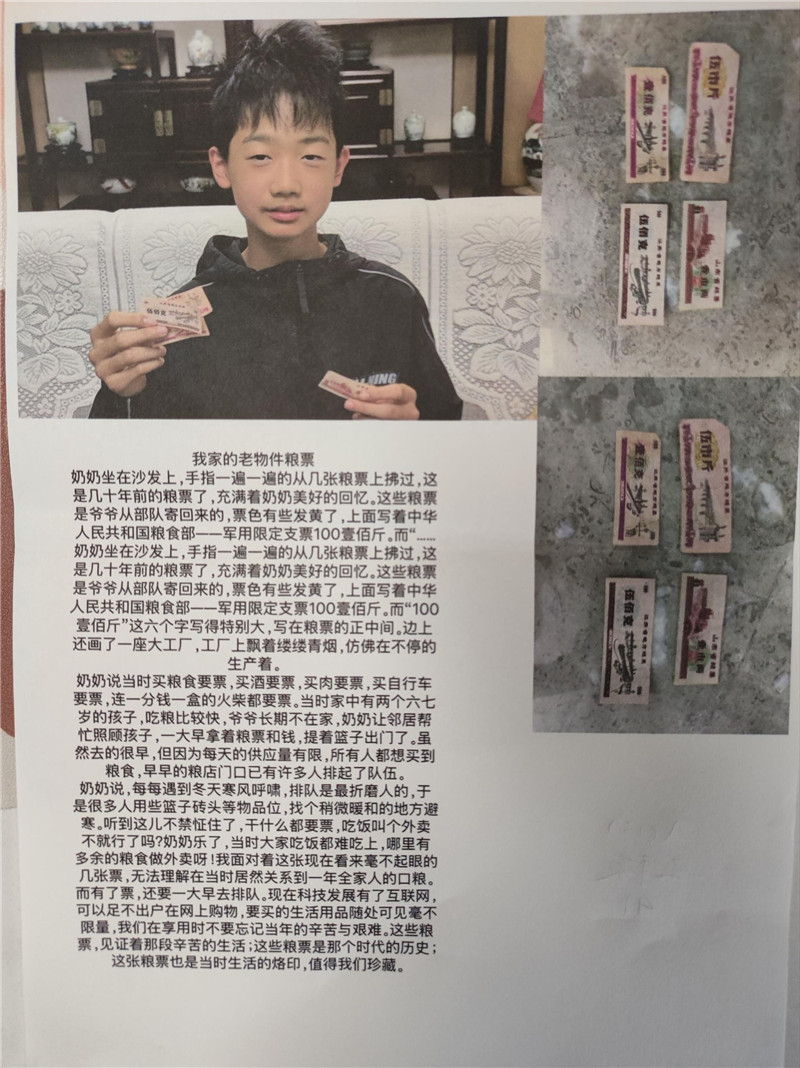 我家的老物件粮票
奶奶坐在沙发上,手指一遍一遍的从几张粮票上拂过,这
是几十年前的粮票了,充满着奶奶美好的回忆。这些粮票
是爷爷从部队寄回来的,票色有些发黄了,上面写着中华
人民共和国粮食部——军用限定支票100壹佰斤。而“……
奶奶坐在沙发上,手指一遍一遍的从几张粮票上拂过,这
是几十年前的粮票了,充满着奶奶美好的回忆。这些粮票
是爷爷从部队寄回来的,票色有些发黄了,上面写着中华
人民共和国粮食部——军用限定支票100壹佰斤。而“100
壹佰斤”这六个字写得特别大,写在粮票的正中间。边上
还画了一座大工厂,工厂上飘着缕缕青烟,仿佛在不停的
生产着。
奶奶说当时买粮食要票,买酒要票,买肉要票,买自行车
要票,连一分钱一盒的火柴都要票。当时家中有两个六七
岁的孩子,吃粮比较快,爷爷长期不在家,奶奶让邻居帮
忙照顾孩子,一大早拿着粮票和钱,提着篮子出门了。虽
然去的很早,但因为每天的供应量有限,所有人都想买到
粮食,早早的粮店门口已有许多人排起了队伍。
奶奶说,每每遇到冬天寒风呼啸,排队是最折磨人的,于
是很多人用些篮子砖头等物品位,找个稍微暖和的地方避
寒。听到这儿不禁怔住了,干什么都要票,吃饭叫个外卖
不就行了吗?奶奶乐了,当时大家吃饭都难吃上,哪里有
多余的粮食做外卖呀!我面对着这张现在看来毫不起眼的
几张票,无法理解在当时居然关系到一年全家人的口粮。
而有了票,还要一大早去排队。现在科技发展有了互联网,
可以足不出户在网上购物,要买的生活用品随处可见毫不
限量,我们在享用时不要忘记当年的辛苦与艰难。这些粮
票,见证着那段辛苦的生活;这些粮票是那个时代的历史;
这张粮票也是当时生活的烙印,值得我们珍藏。
伍佰克
伍市斤
壹佰克
伍佰克
伍市斤
壹佰克
伍佰克